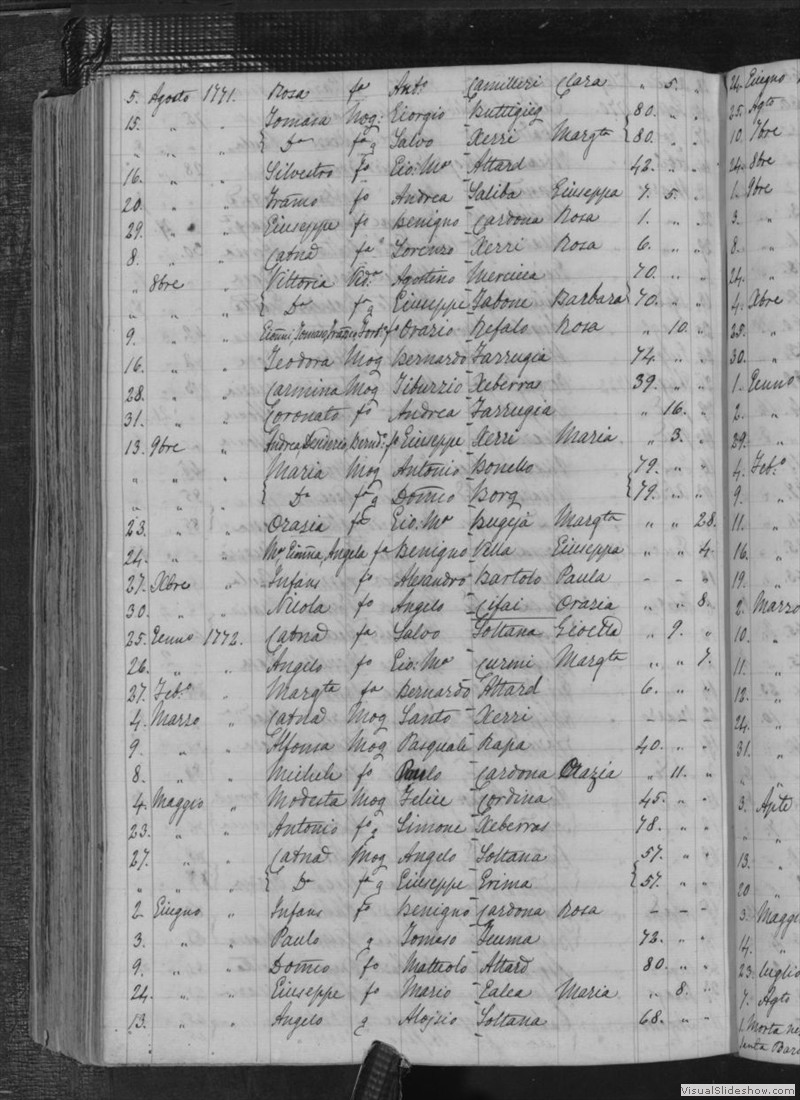 5. Agosto 1771. Rosa fa Ant.o Camilleri Clara " 5. "
15. " " Tomasa Mog: Giorgio Buttigieg 80. " "
" " " { Da fa g Salvo Xerri Margta } 80. " "
16. " " Silvestro fo Gio: Ma Attard 42. " "
20. " " fo Andrea Saliba Giuseppa 7. 5. "
29. " " Giuseppe fo Benigno Cardona Rosa 1. " "
8. " " Catna fa Lorenzo Xerri Rosa 6. " "
" 8bre " Vittoria Ved.a Agostino Mercieca 70. " "
" " " { Da fa g Giuseppe Tabone Barbara } 70. " "
9. " " fo Orazio Refalo Rosa " 10. "
16. " " Teodora Mog Bernardo Farrugia 74. " "
28. " " Carmina Mog Tiburzio Xeberra 39. " "
31. " " Coronato fo Andrea Farrugia " 16. "
13. 9bre " Andrea fo Giuseppe Xerri Maria " 3. "
" " " Maria Mog Antonio Bonello 79. " "
" " " { Da fa g Domco Borg { 79. " "
23. " " Orasia fa Gio: Ma Bugeja Margta " " 28.
24. " " Angela fa Benigno Vella Giuseppa " " 4.
27. Xbre " Infans fo Alesandro Bartolo Paula - - "
30. " " Nicola fo Angelo Cifai Orazia " " 8.
25. Genno 1772. Catna fa Salvo Soltana " 9. "
26. " " Angelo fo Gio: Ma Curmi Margta " " 7.
27. Feb.o " Margta fa Bernardo Attard 6. " "
4. Marzo " Catna Mog Santo Xerri - - -
9. " " Alfonsa Mog Pasquale Rapa 40. " "
8. " " Michele fo Paolo Cardona Orazia " 11. "
4. Maggio " Modesta Mog Felice Cordina 45. " "
23. " " Antonio fo g Simone Xeberras 78. " "
27. " " Catna Mog Angelo Soltana 57. " "
" " " { Da fa g Giuseppe Grima { 57. " "
2 Giugno " Infans fo Benigno Cardona Rosa - - -
3. " " Paulo g Tomaso 72. " "
9. " " Domco fo Matteolo Attard 80. " "
24. " " Giuseppe fo Mario Galea Maria " 8. "
13. " " Angelo g Aloisio Soltana 68. " "
24. Giugno
25. Agto
10. 7bre
24. 8bre
1. 9bre
3. "
8. "
24. "
4. Xbre
25. "
30. "
1. Genno
2. "
29. "
4. Feb.o
9. "
11. "
16. "
19. "
2. Marzo
10. "
11. "
12. "
24. "
31. "
"
3. Aple
" "
13. "
20 "
3. Maggi
14. "
23. luglio
7. Agto
1. Morta ne
Santa Bar
VisualSlideshow.com